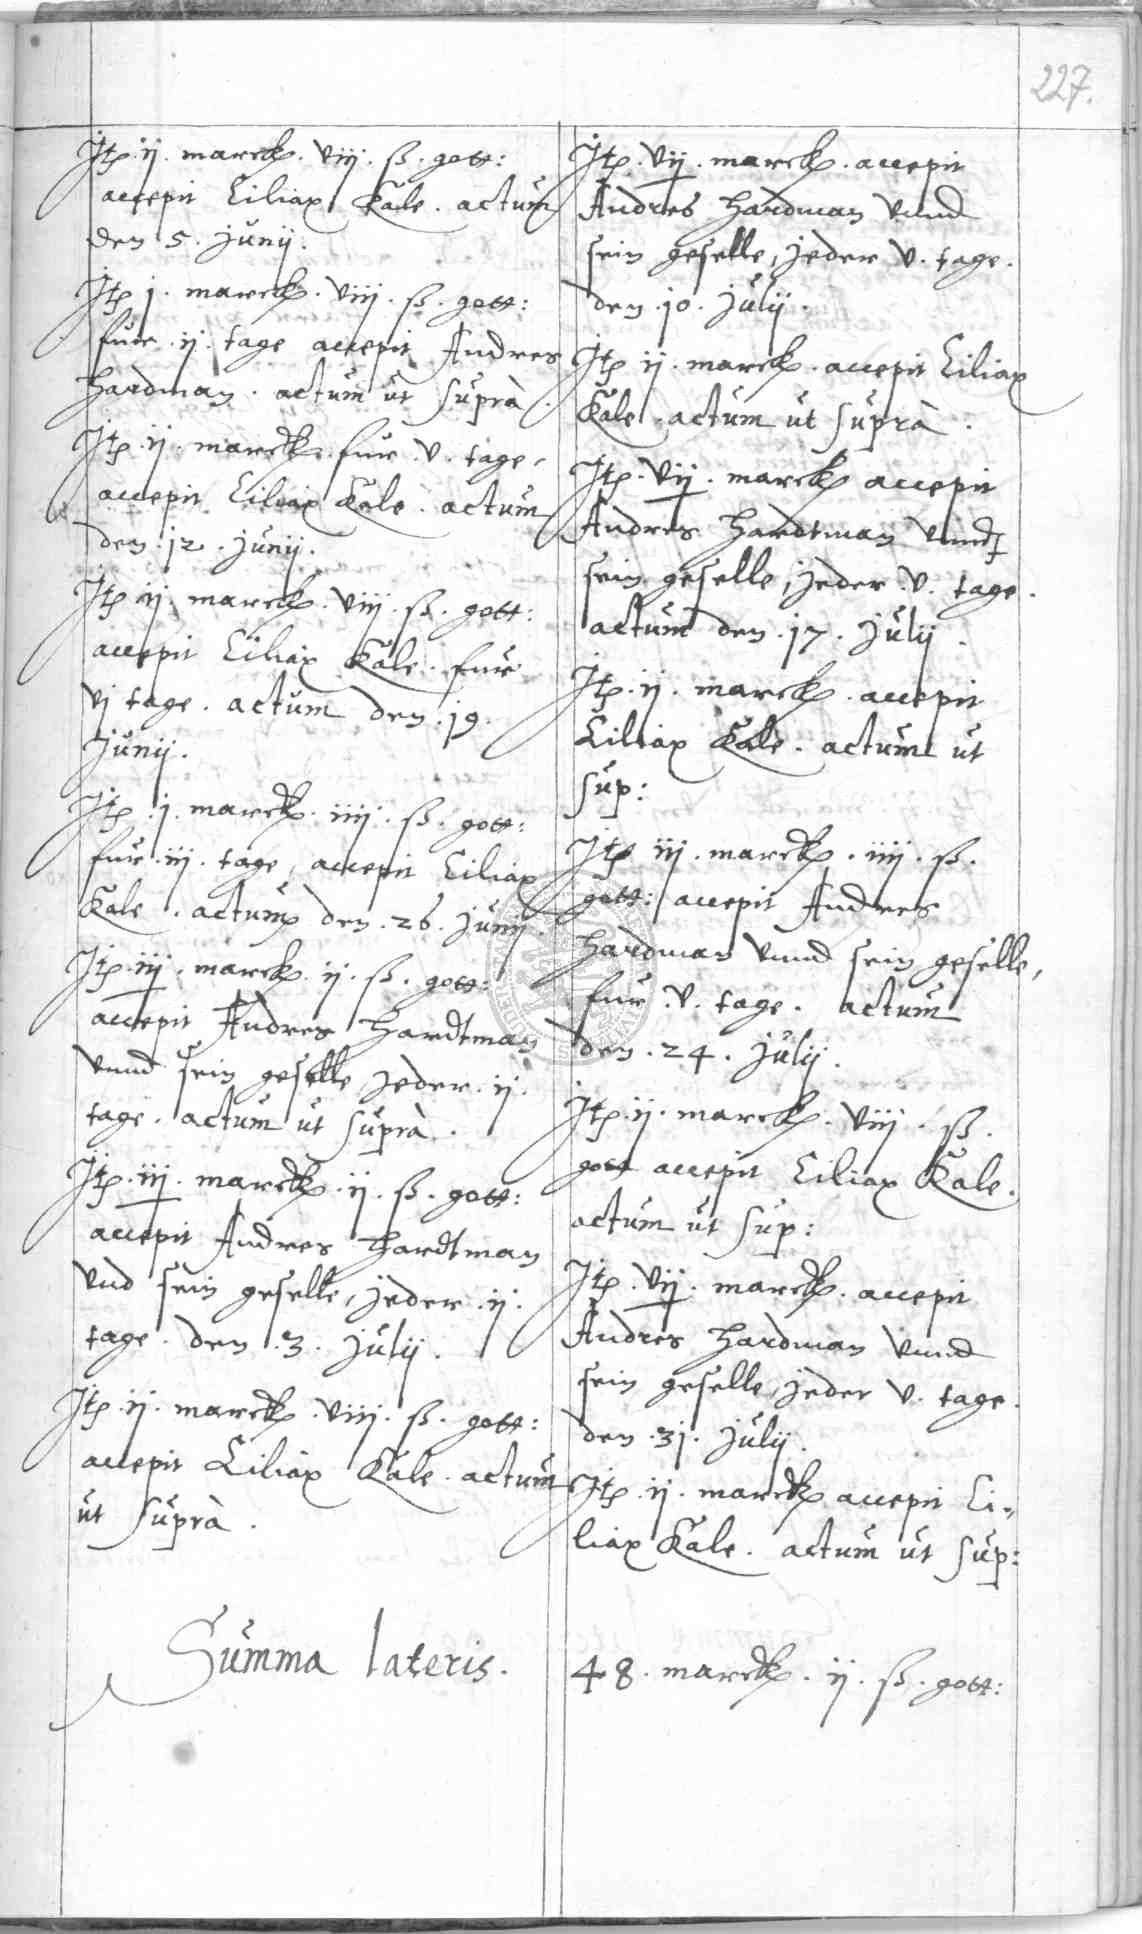 227.
Itp. ij. marck. viij. ß. gott:
accepit Ciliax Kale. actum
den 5. Junij.
Itp j. marck. viij. ß. gott:
fur ij. tage accepit Andres
Hardman. actum ut suprà.
Itp. ij. marck. fur. v. tage,
accepit Ciliax Kale. actum
den. 12. Junij.
Itp ij. marck. viij. ß. gott:
accepit Ciliax Kale. fur
vj tage. actum den. 19.
Junij.
Itp. j. marck. iiij. ß. gott:
fur. iij. tage, accepit Ciliax
Kale. actum den. 26. Junij.
Itp. iij. marck. ij. ß. gott:
accepit Andres Hardtman
vnnd sein geselle, jeder ij.
tage. actum ut suprà.
Itp. iij. marck. ij. ß. gott:
accepit Andres Hardtman
vnd sein geselle, jeder. ij.
tage. den. 3. Julij.
Itp. ij. marck. viij. ß. gott:
accepit Ciliax Kale. actum
ut suprà.
Summa lateris.
Itp. vij. marck. accepit
Andres Hardman vnnd
sein geselle, jeder v. tage.
den. 10. Julij.
Itp ij. marck. accepit Ciliax
Kale. actum ut suprà.
Itp. vij. marck accepit
Andres Hardtman vnnd
sein geselle, jeder. v. tage.
actum den. 17. Julij.
Itp. ij. marck. accepit
Ciliax Kale. actum ut
sup:
Itp iij. marck. iiij. ß.
gott: accepit Andres
Hardman vnnd sein geselle,
fur. v. tage. actum
den. 24. Julij.
Itp. ij. marck. viij. ß.
gott accepit Ciliax Kale.
actum ut sup:
Itp. vij. marck. accepit
Andres Hardman vnnd
sein geselle, jeder v. tage.
den. 31. Julij.
Itp. ij. marck accepit Ci-
liax Kale. actum ut sup:
48. marck. ij. ß. gott: